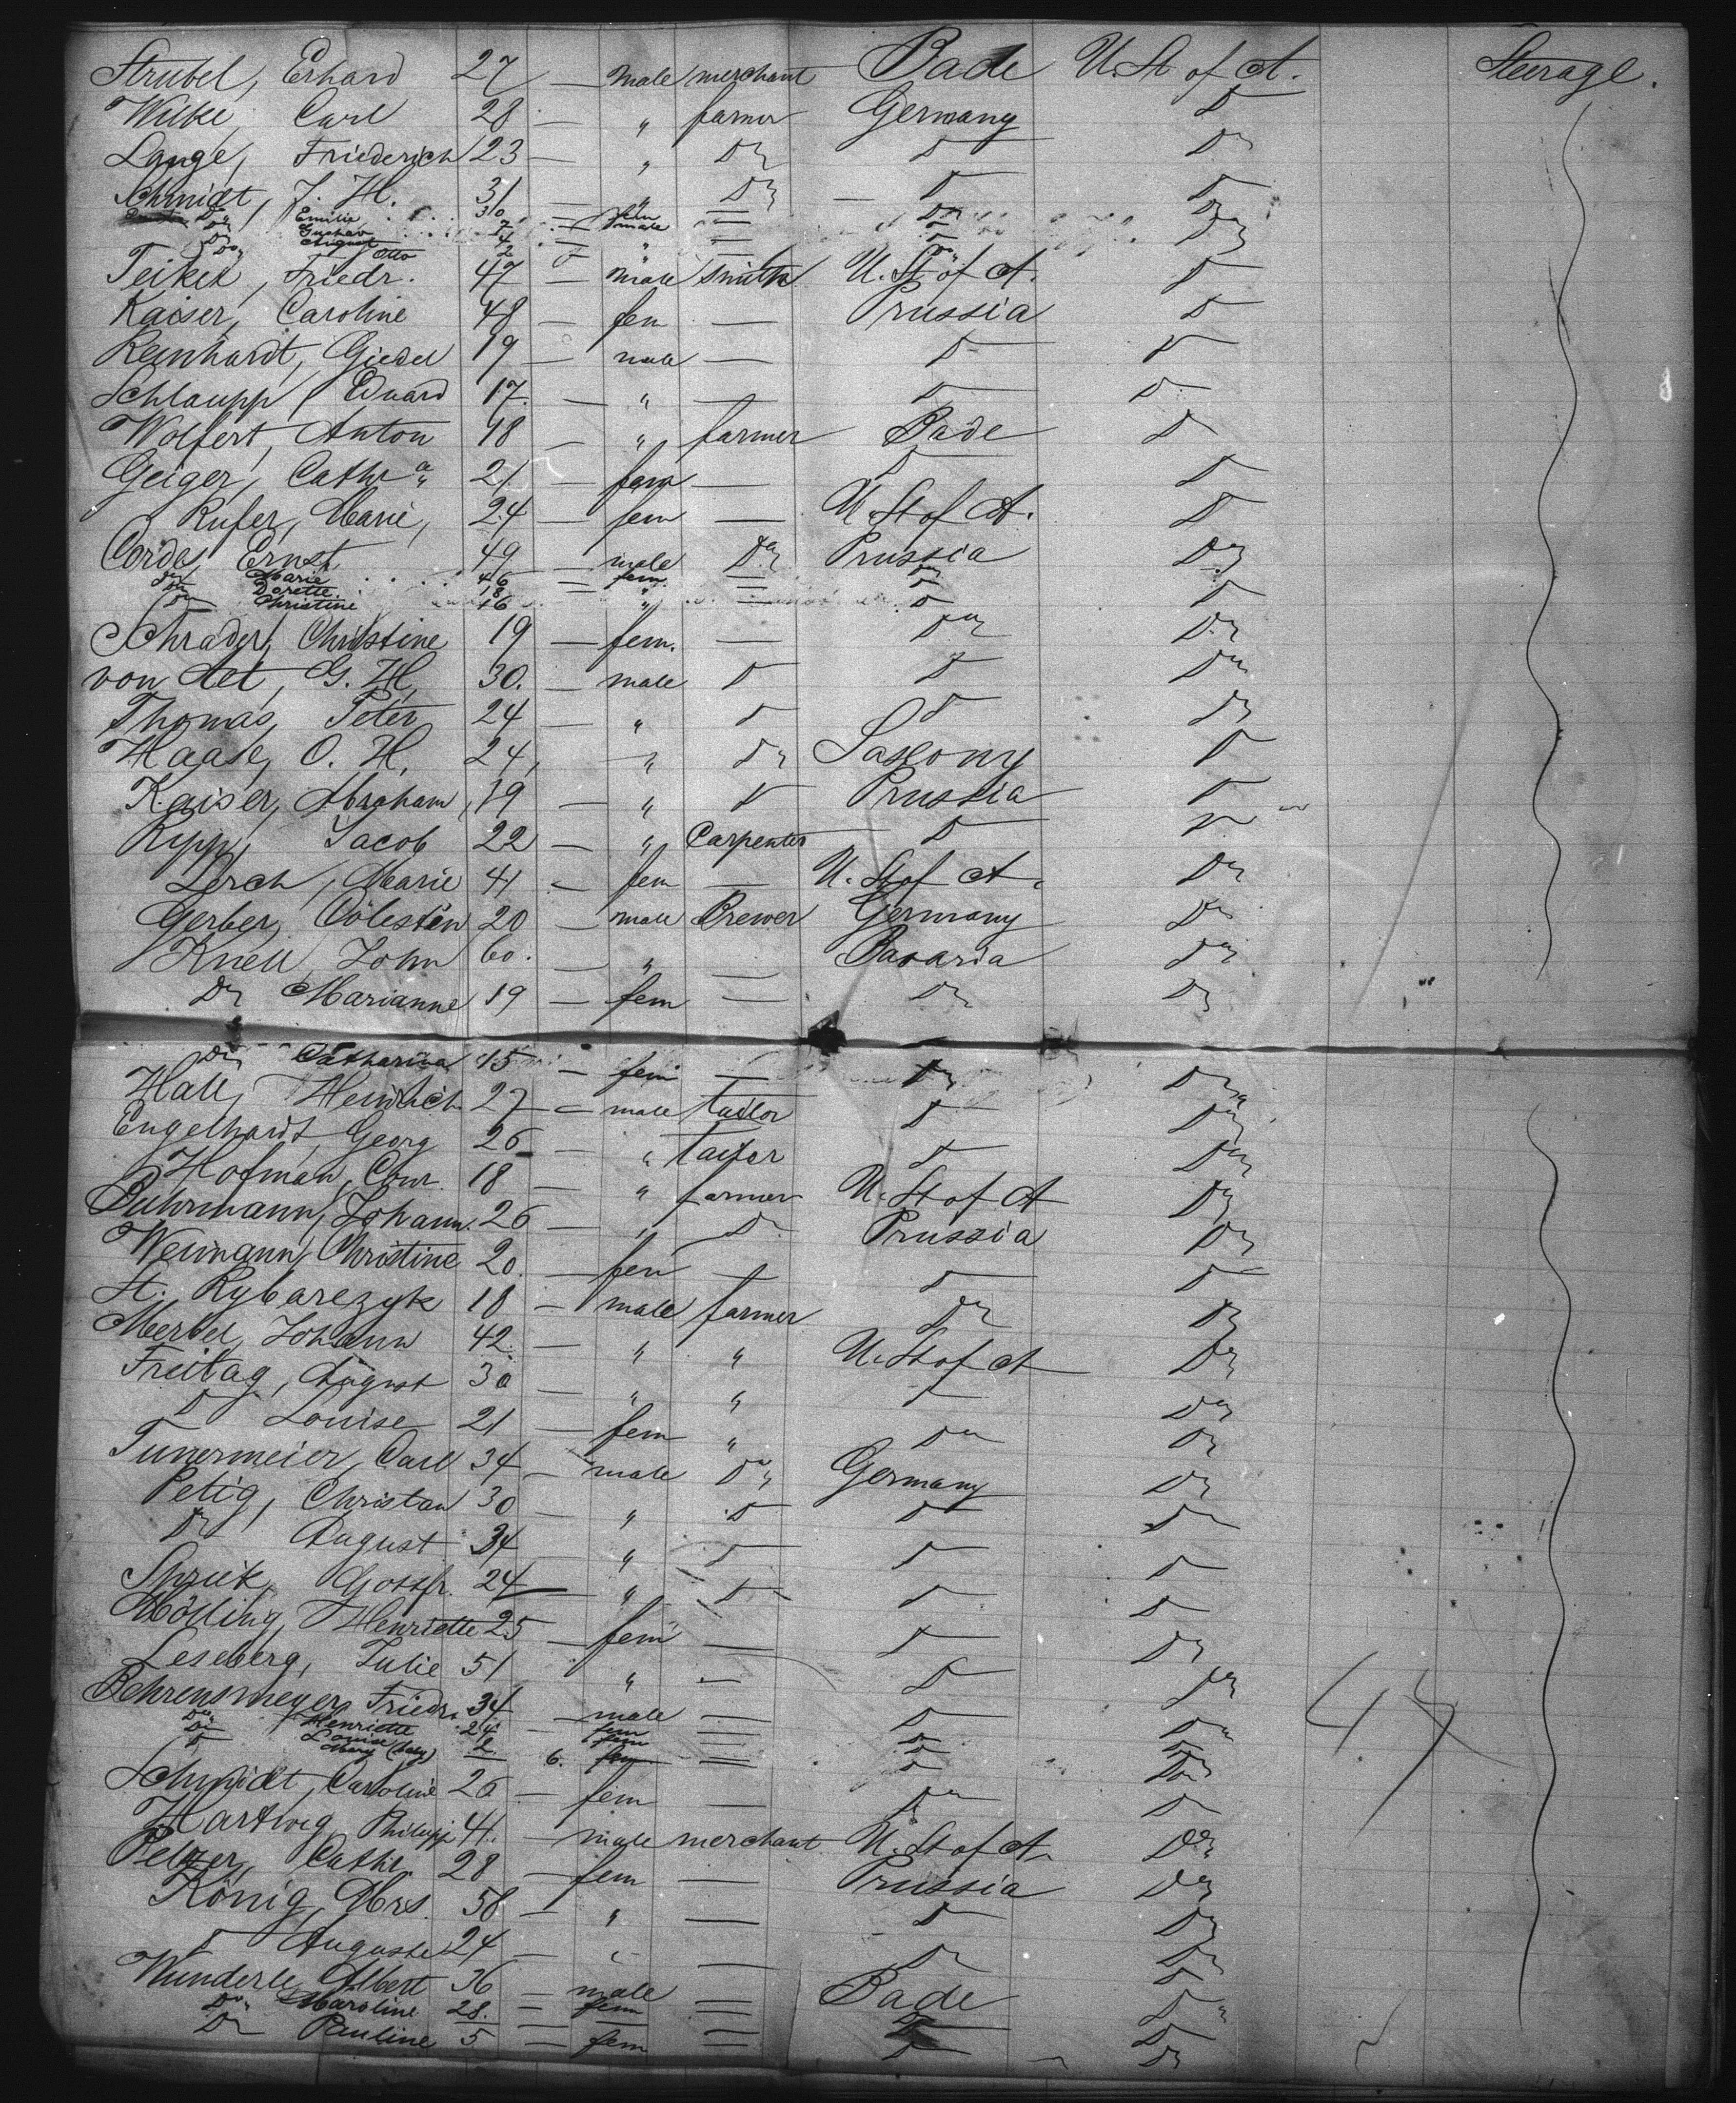 Strubel, Erhard 27 — male merchant Bade U. St of A. Steerage.
Wilke, Carl 28 — " farmer Germany Do
Lange, Friederich 23 — " Do Do Do
Schmidt, J. H. 31 — " Do Do Do
Do Emilie 30 — fem — Do Do
Do Gustav — male — Do Do
Do August 4 — " — Do
Do Otto 2 " Do
Teiket, Friedr. 47 — male smith U. St of A. Do
Kaiser, Caroline 48 — fem — Prussia Do
Reinhardt, Giedel 19 — male — Do Do
Schlaupp, Eduard 17. — " — Do Do
Wolfert, Anton 48 — " farmer Bade Do
Geiger, Cathr a 21 — fem — Do Do
Rufer, Marie, 24 — fem — U. St of A. Do
Cordes, Ernst 49 — male Do Prussia Do
Do Marie 46 — fem. — Do
Do Dorette 18 — " — Do Do
Do Christine 16 " Do
Schrader, Christine 19 — fem. — Do Do
von Aet, G. H. 30. — male Do Do Do
Thomas, Peter 24 — " Do Do Do
Haase, O. H. 24, — " Do Saxony Do
Kaiser, Abraham, 19 — " Do Prussia Do
Rypp, Jacob 22 — " Carpenter Do Do
Lerch, Marie 41 — fem — U. St of A. Do
Gerber, Cölestin 20 — male Brewer Germany Do
Knell, John 60. — " — Bavaria Do
Do Marianne 19 — fem — Do Do
Do Catharina 15 — fem — Do Do
Hall, Heinrich 27 — male tailor Do Do
Engelhardt, Georg 26 — " tailor Do Do
Hofman, Conr. 18 — " farmer U. St of A Do
Buhrmann, Johann. 26 — " Do Prussia Do
Weimann, Christine 20. — fem — Do Do
St. Rybarezyk 18 — male farmer Do Do
Merbel, Johann 42. — " " U. St of A Do
Freitag, August 30 — " " Do Do
Do Louise 21 — fem " Do Do
Tunermeier, Carl 34 — male Do Germany Do
Petig, Christian 30 — " Do Do Do
Do August 34 — " Do Do Do
Spruik, Gottfr. 24 — " Do Do Do
Mölling, Henriette 25 — fem — Do Do
Leseberg, Julie 51 " — Do Do
Behrensmeyer, Friedr. 34 — male — Do Do
Do Henriette 24 — fem — Do Do
Do Louise 2 fem — Do Do
Do Mary (baby) 6. fem — Do Do
Schmidt, Caroline 26 — fem — Do Do
Hartwig, Philipp 41. — male merchant U. St of A. Do
Pelzer, Cathr. 28 — fem — Prussia Do
König, Mrs. 58 — " — Do Do
Do Auguste 24 — " — Do Do
Wunderle, Albert 36 — male — Bade Do
Do Karoline 28. — fem — Do Do
Do Pauline 5 — fem — Do Do